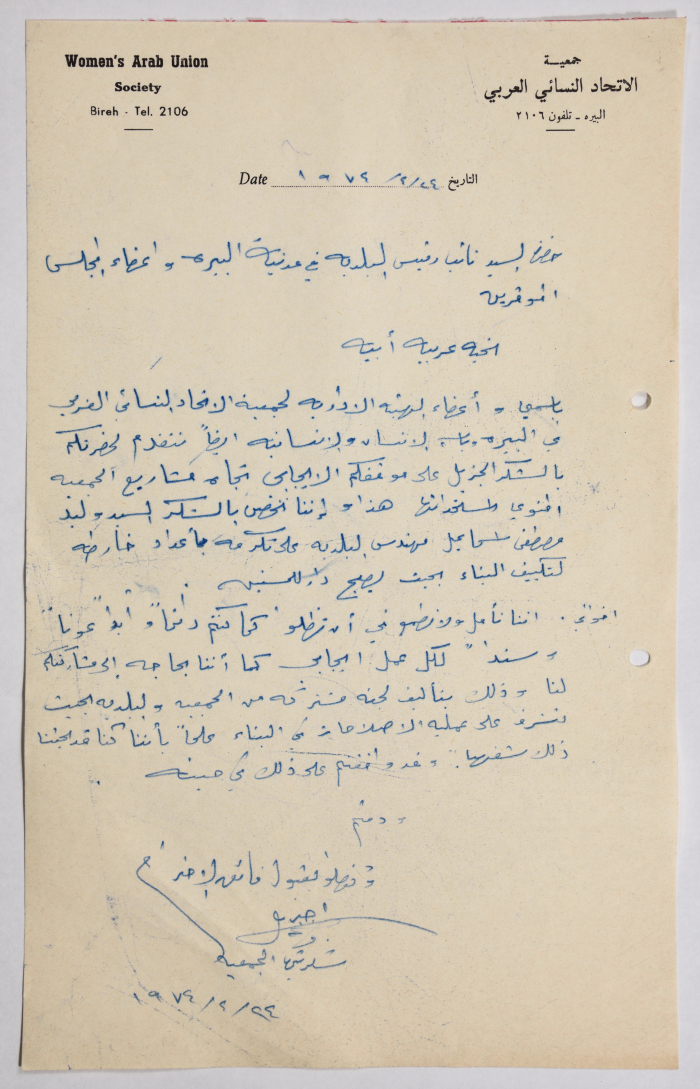 Women's Arab Union
Society
Bireh - Tel. 2106
جمعيـــة
الاتحاد النسائي العربي
البيره - تلفون ٢١٠٦
Date ١٩٧٤/٢/٢٤ التاريخ
حضرة السيد نائب رئيس البلديه في مدينة البيره و اعضاء المجلس
الموقرين
تحيه عربيه أبيه
باسمي و أعضاء الهيئه الاداريه لجمعية الاتحاد النسائي العربي
في البيره الانسان والانسانيه ايضاً نتقدم لحضرتكم
بالشكر الجزيل على موقفكم الايجابي تجاه مشاريع الجمعيه
المنوي هذا و إننا نخص بالشكر السيد وليد
مصطفى مهندس البلديه على تكرمه باعداد خارطه
لتكييف البناء بحيث يصبح دار للمسنين
اخواني . اننا نأمل ونطمع في أن تظلوا كما كنتم دائماً و أبداً عوناً
وسنداً لكل عمل ايجابي كما أننا بحاجه إلى مشاركتكم
لنا و ذلك بتأليف لجنه مشتركه من الجمعيه و البلديه بحيث
تشرف على عملية الاصلاحات في البناء علماً بأننا كنا قد بحثنا
ذلك شفهياً . وقد وافقتم على ذلك في حينه .
و دمتم
وتفضلوا بقبول فائق الاحترام
الجمعيه
١٩٧٤/٢/٢٤